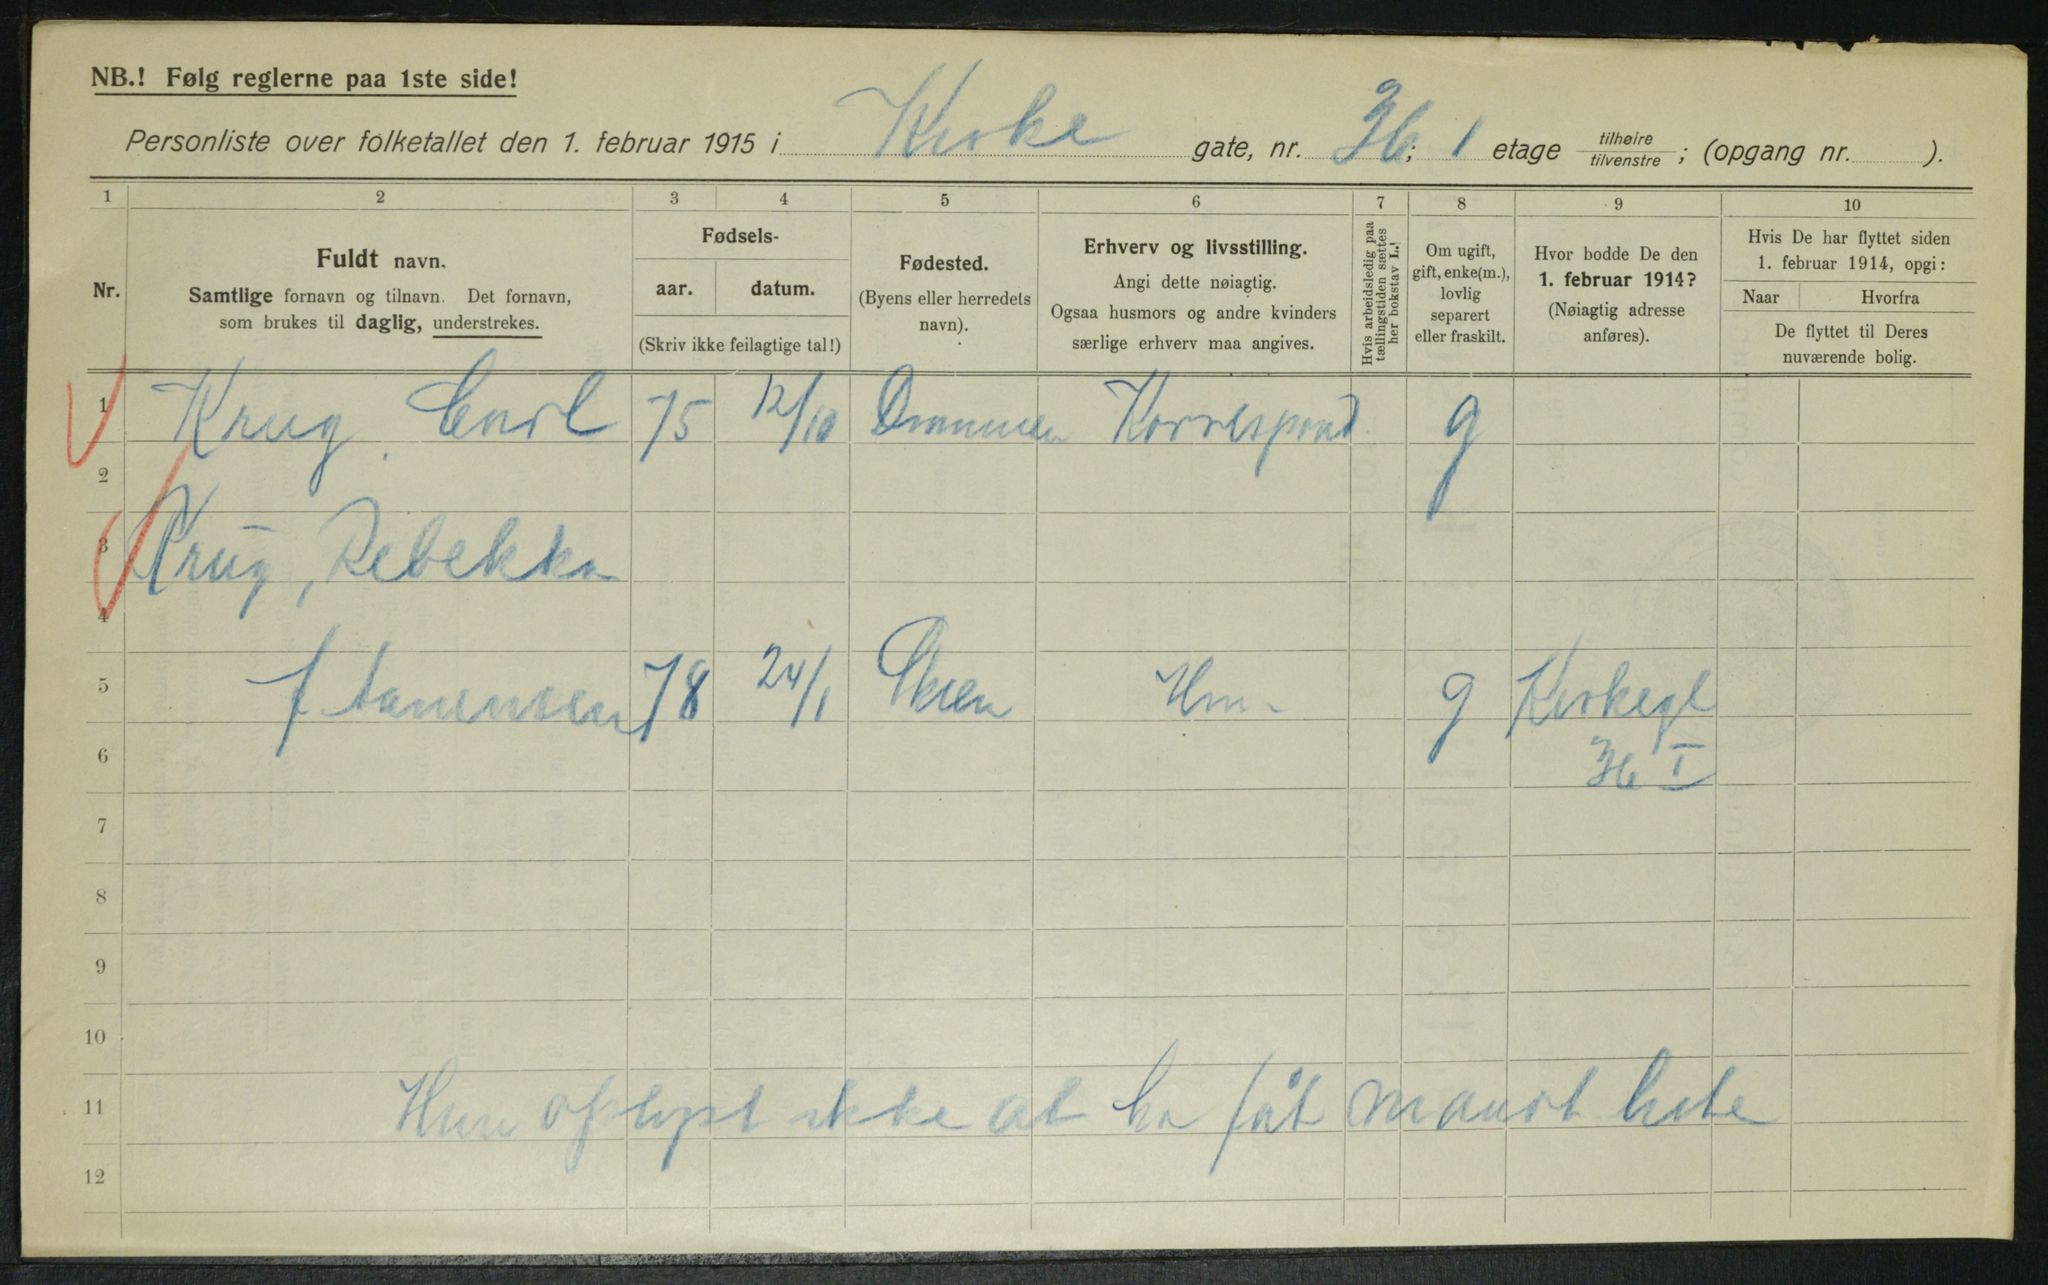 NB.! Følg reglerne paa 1ste side!
Personliste over folketallet den 1. februar 1915 i Kirke gate, nr. 36; 1 etage tilhøire tilvenstre; (opgang nr. ).
1 2 3 4 5 6 7 8 9 10
Nr.
Fuldt navn.
Samtlige fornavn og tilnavn. Det fornavn,
som brukes til daglig, understrekes.
Fødsels-
aar. datum.
(Skriv ikke feilagtige tal!)
Fødested.
(Byens eller herredets
navn).
Erhverv og livsstilling.
Angi dette nøiagtig.
Ogsaa husmors og andre kvinders
særlige erhverv maa angives.
Hvis arbeidsledig paa
tællingstiden sættes
her bokstav L.!
Om ugift,
gift, enke(m.),
lovlig
separert
eller fraskilt.
Hvor bodde De den
1. februar 1914?
(Nøiagtig adresse
anføres).
Hvis De har flyttet siden
1. februar 1914, opgi:
Naar Hvorfra
De flyttet til Deres
nuværende bolig.
1 Krug, Carl 75 12/10 Drammen Korrespond g
2
3 Krug, Rebekka
4
5 f 78 24/1 Skien Hm. g Kirkegt
6 36 I
7
8
9
10
11 Hun oplyst ikke at ha fåt mandt liste
12